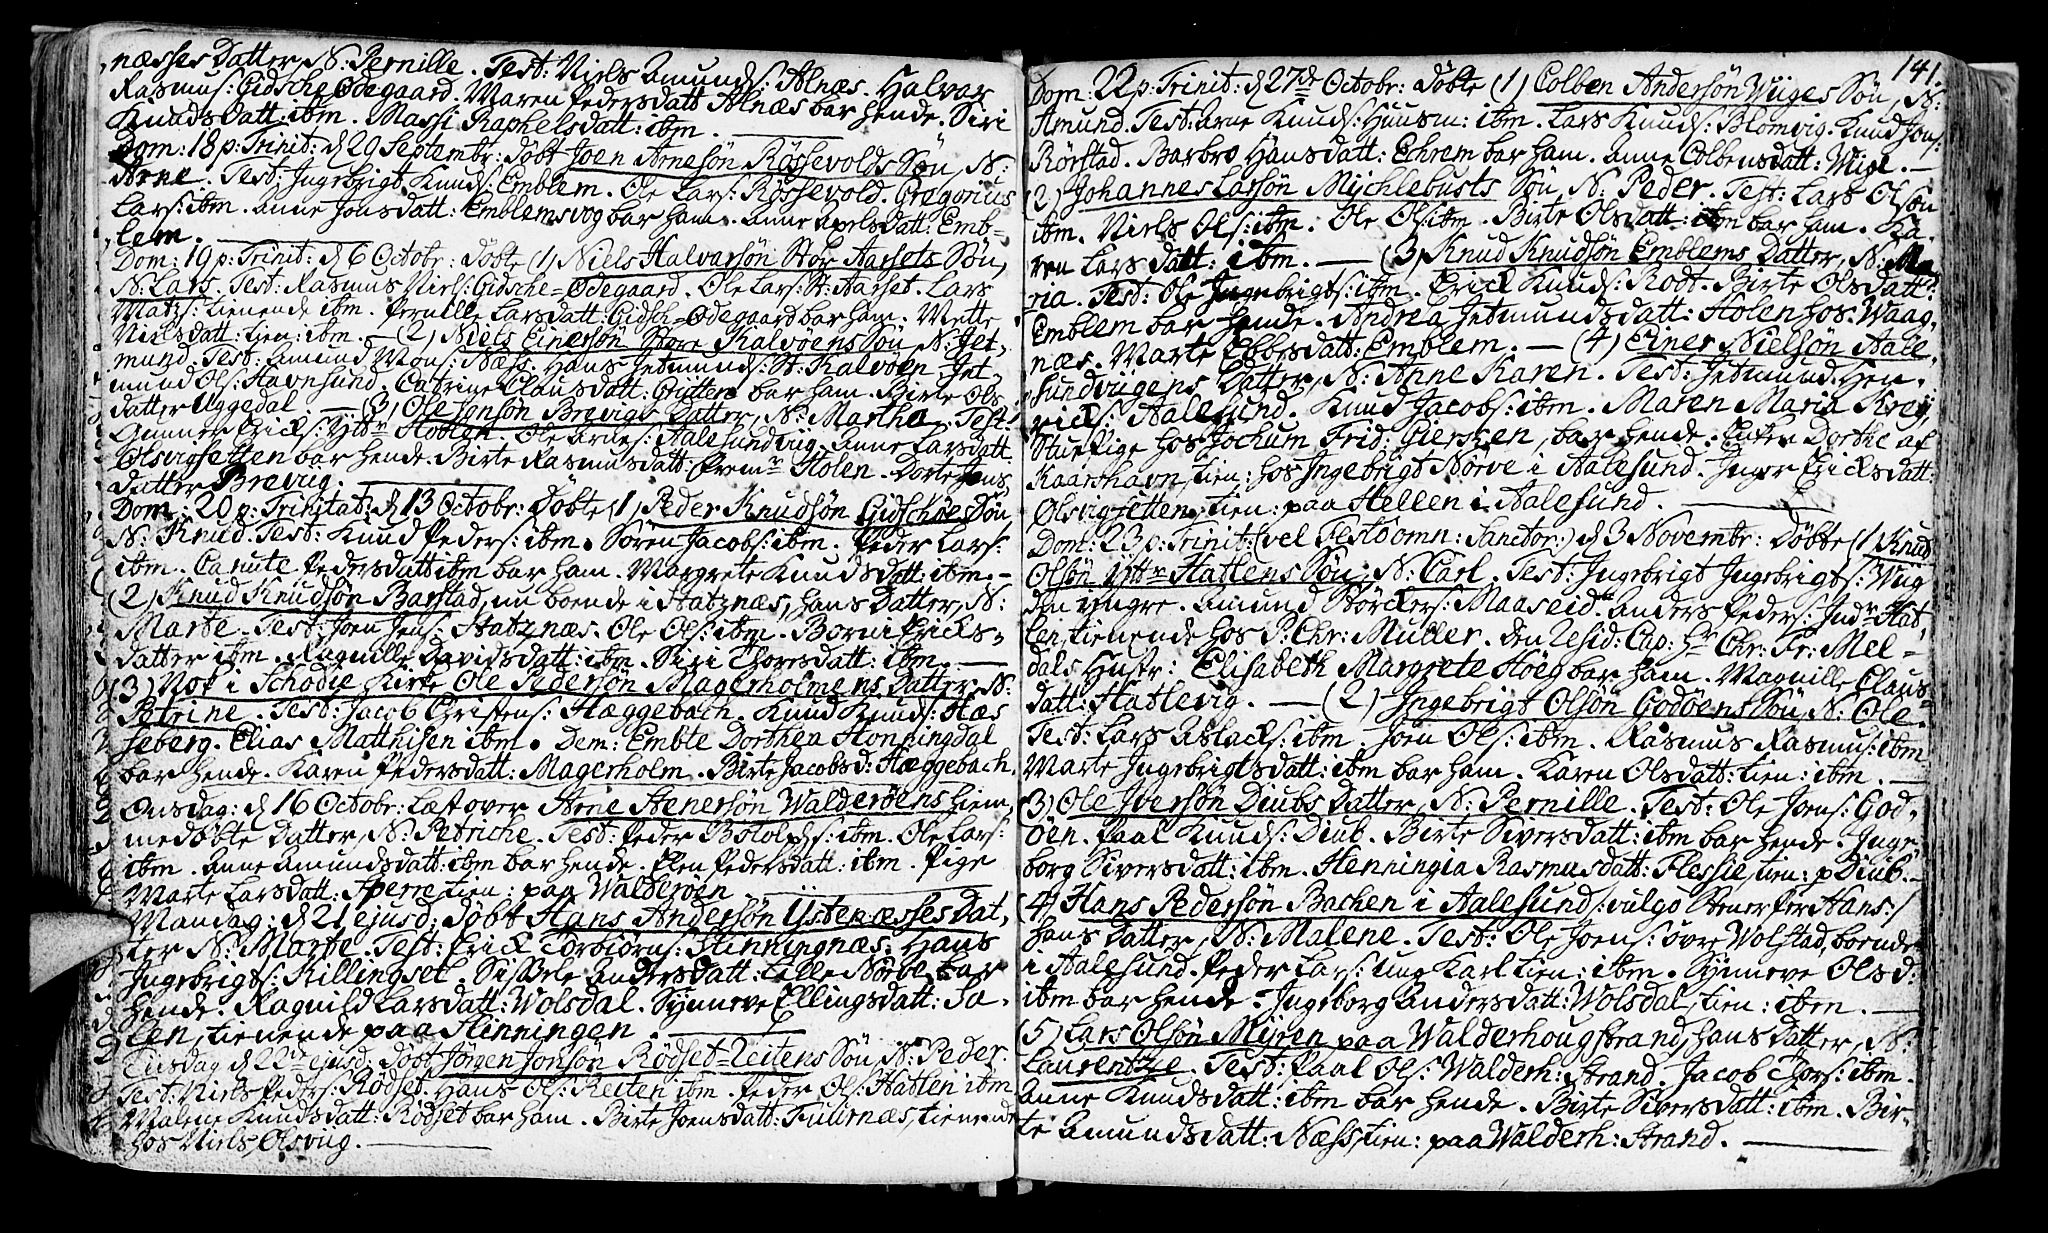 næsses Datter, N: Pernille. Test: Niels Amunds: Alnæs. Halvar
Rasmus: Gidsche Ødegaard. Maren Pedersdatt Alnæs bar hende. Siri
Knudsdatt: ibm. Massi Raphelsdatt: ibm.
Dom: 18 p: Trinit: d 29 Septembr: Døbt Joen Arnesön Rössevolds Sön, N:
Arne. Test: Ingebrigt Knuds: Emblem. Ole Lars: Rössevold. Gregorius
Lars: ibm. Anne Jonsdatt: Emblemsvog bar ham. Anne Axelsdatt: Emb=
lem.
Dom: 19 p: Trinit: d 6 Octobr: Døbte (1) Niels Halvarsön Stor Aarsets Sön,
N: Lars. Test: Rasmus Niels: Gidsche=Ødegaard. Ole Lars: St: Aarset. Lars
Matz: tienende ibm. Pernille Larsdatt Gidsch=Ødegaard bar ham. Mette
Nielsdatt: tien: ibm. — (2) Niels Einersön Store Kalvöens Sön, N: Jet=
mund. Test: Amund Mons: Næss. Hans Jetmunds: St: Kalvöen. Jet=
mund Ols: Havnsund. Catrine Clausdatt: Giötten bar ham. Birte Ols
datter Uggedal. — (3) Ole Jonsön Brevigs Datter, N: Martha. Test:
Gunner Ericks: Ytbr Hoblen. Ole Arnes: Aalesundvug. Anne Larsdatt:
Olsvigsetten bar hende. Birte Rasmusdatt: Frem Holen. Dorte Jons
datter Brevug.
Dom: 20 p: Trinitat: d 13 Octobr: Døbte (1) Peder Knudsön Gidsches Sön,
N: Knud. Test: Knud Peders: ibm. Sören Jacobs: ibm. Peder Lars:
ibm. Canute Pedersdatt ibm bar ham. Margrete Knudsdatt: ibm. —
(2) Knud Knudsön Barstad, nu boende i Hatznæs, hans Datter, N:
Marte. Test: Joen Jens: Hatznæs. Ole Ols: ibm. Borni Ericks=
datter ibm. Ragnille Davidsdatt: ibm. Siri Thoresdatt: ibm. —
(3) Nok i Schodie Kirke Ole Pedersön Magerholmens Datter, N:
Petrine. Test: Jacob Christens: Hæggebach. Knud Knuds: Hæs
seberg. Elias Matthisen ibm. Dem: Embte Dorthea Honningdal
bar hende. Karen Pedersdatt: Magerholm. Birte Jacobsd: Hæggebach.
Onsdag: d 16 Octobr: Læst over Arne Stenersön Walderöens hiem,
medøbte Datter, N: Petriche. Test: Peder Botolphs: ibm. Ole Lars:
ibm. Anne Amundsdatt: ibm bar hende. Elen Pedersdatt: ibm. Pige
Marte Larsdatt: Sperre tien: paa Walderöen.
Mandag: d 21 ejusd: Døbt Hans Andersön Ystenæsses Dat,
ter N: Marte. Test: Erick Torbiörns: Slinningnæs. Hans
Ingebrigts: Killingset. Sissele Andersdatt: Lille Nörve bar
hende. Ragnild Larsdatt: Wolsdal. Synneve Ellingsdatt: Sa=
len, tienende paa Slinningen.
Tiisdag d 22de ejusd: Døbt Jörgen Jonsön Rödset=Reitens Sön, N: Peder.
Test: Niels Peders: Rödset. Hans Ols: Reiten ibm. Peder Ols: Hatlen ibm.
Malene Knudsdatt: Rödset bar ham. Birte Joensdatt: Tuternæs, tienende
hos Niels Olsvug.
141.
Dom: 22 p: Trinit: d 27de Octobr: Døbte (1) Colben Andersön Wiiges Sön, N:
Amund. Test: Arne Knuds: Huusm: ibm. Lars Knuds: Blomvig. Knud Jons:
Rörstad. Barbro Hansdatt: Echrem bar ham. Anne Colbensdatt: Wige. —
(2) Johannes Larsön Mychlebusts Sön, N: Peder. Test: Lars Olsøn
ibm. Niels Ols: ibm. Ole Ols: ibm. Birte Olsdatt: ibm bar ham. Ka=
ren Larsdatt: ibm. — (3) Knud Knudsön Emblems Datter, N: Ma=
ria. Test: Ole Ingebrigts: ibm. Erick Knuds: Rodt. Birte Olsdatt:
Emblem bar hende. Andrea Jetmundsdatt: Holen hos Waag,
næs. Marte Ebbesdatt: Emblem. — (4) Einer Nielsön Aale,
sundvugens Datter, N: Anne Karen. Test: Jetmund Hen,
ricks: Aalesund. Knud Jacobs: ibm. Maren Maria Krey,
Stue Pige hos Jochum Frid: Giertzen, bar hende. Enken Dorthe af
Kaarshavn, tien: hos Ingebrigt Nörve i Aalesund. Inger Ericksdatt:
Olsvigsetten, tien: paa Hellen i Aalesund.
Dom: 23 p: Trinit: (vel Fest: omn: Sanctor:) d 3 Novembr: Døbte (1) Knud
Olsön Yttr Hatlens Sön, N: Carl. Test: Ingebrigt Ingebrigts: Wug
den yngre. Amund Störckers: Maaseid. Anders Peders: Indr Hat,
len, tienende hos P: Chr: Muller. Den Resid: Cap: Hr Chr: Fr: Mel=
dals Hustr: Elisabeth Margrete Höeg bar ham. Magnille Claus=
datt: Hatlevig. — (2) Ingebrigt Olsön Godöens Sön, N: Ole.
Test: Lars Aslacks: ibm. Joen Ols: ibm. Rasmus Rasmus: ibm
Marte Ingebrigtsdatt: ibm bar ham. Karen Olsdatt: tien: ibm. —
(3) Ole Iversön Diubs Datter, N: Pernille. Test: Ole Joens: God=
öen. Paal Knuds: Diub. Birte Siversdatt: ibm bar hende. Inge=
borg Siversdatt: ibm. Henningia Rasmusdatt: Flessie, tien: p Diub.
(4) Hans Pedersön Bachen i Aalesund /: vulgo Stener Per Hans :/
hans Datter, N: Malene. Test: Ole Joens: övre Wolstad, boende
i Aalesund. Peder Lars: ung Karl tien: ibm. Synneve Olsd:
ibm bar hende. Ingeborg Andersdatt: Wolsdal, tien: ibm. —
(5) Lars Olsön Myren paa Walderhougstrand, hans Datter, N:
Laurentze. Test: Paal Ols: Walderh: Strand. Jacob Thors: ibm.
Anne Knudsdatt: ibm bar hende. Birte Siversdatt: ibm. Bir=
te Amundsdatt: Næss, tien: paa Walderh: Strand.